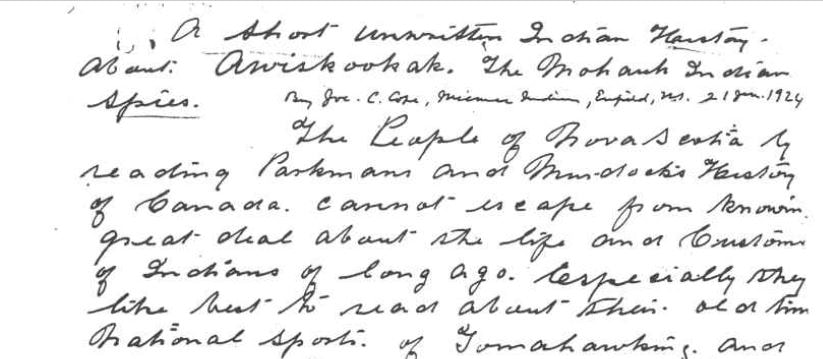 A Short Unwritten Indian History.
About. Awiskookak. The Mohawk Indian
Spies. By Joe. C. Cope, Micmac Indian, Enfield, N.S. 21 Jan. 1924
The People of Nova Scotia by
reading Parkmans and Murdock's History
of Canada. cannot escape from knowin
great deal about the life and Custom
of Indians of long ago. Especially they
like best to read about their. old tim
National Sports. of Tomahawking. and